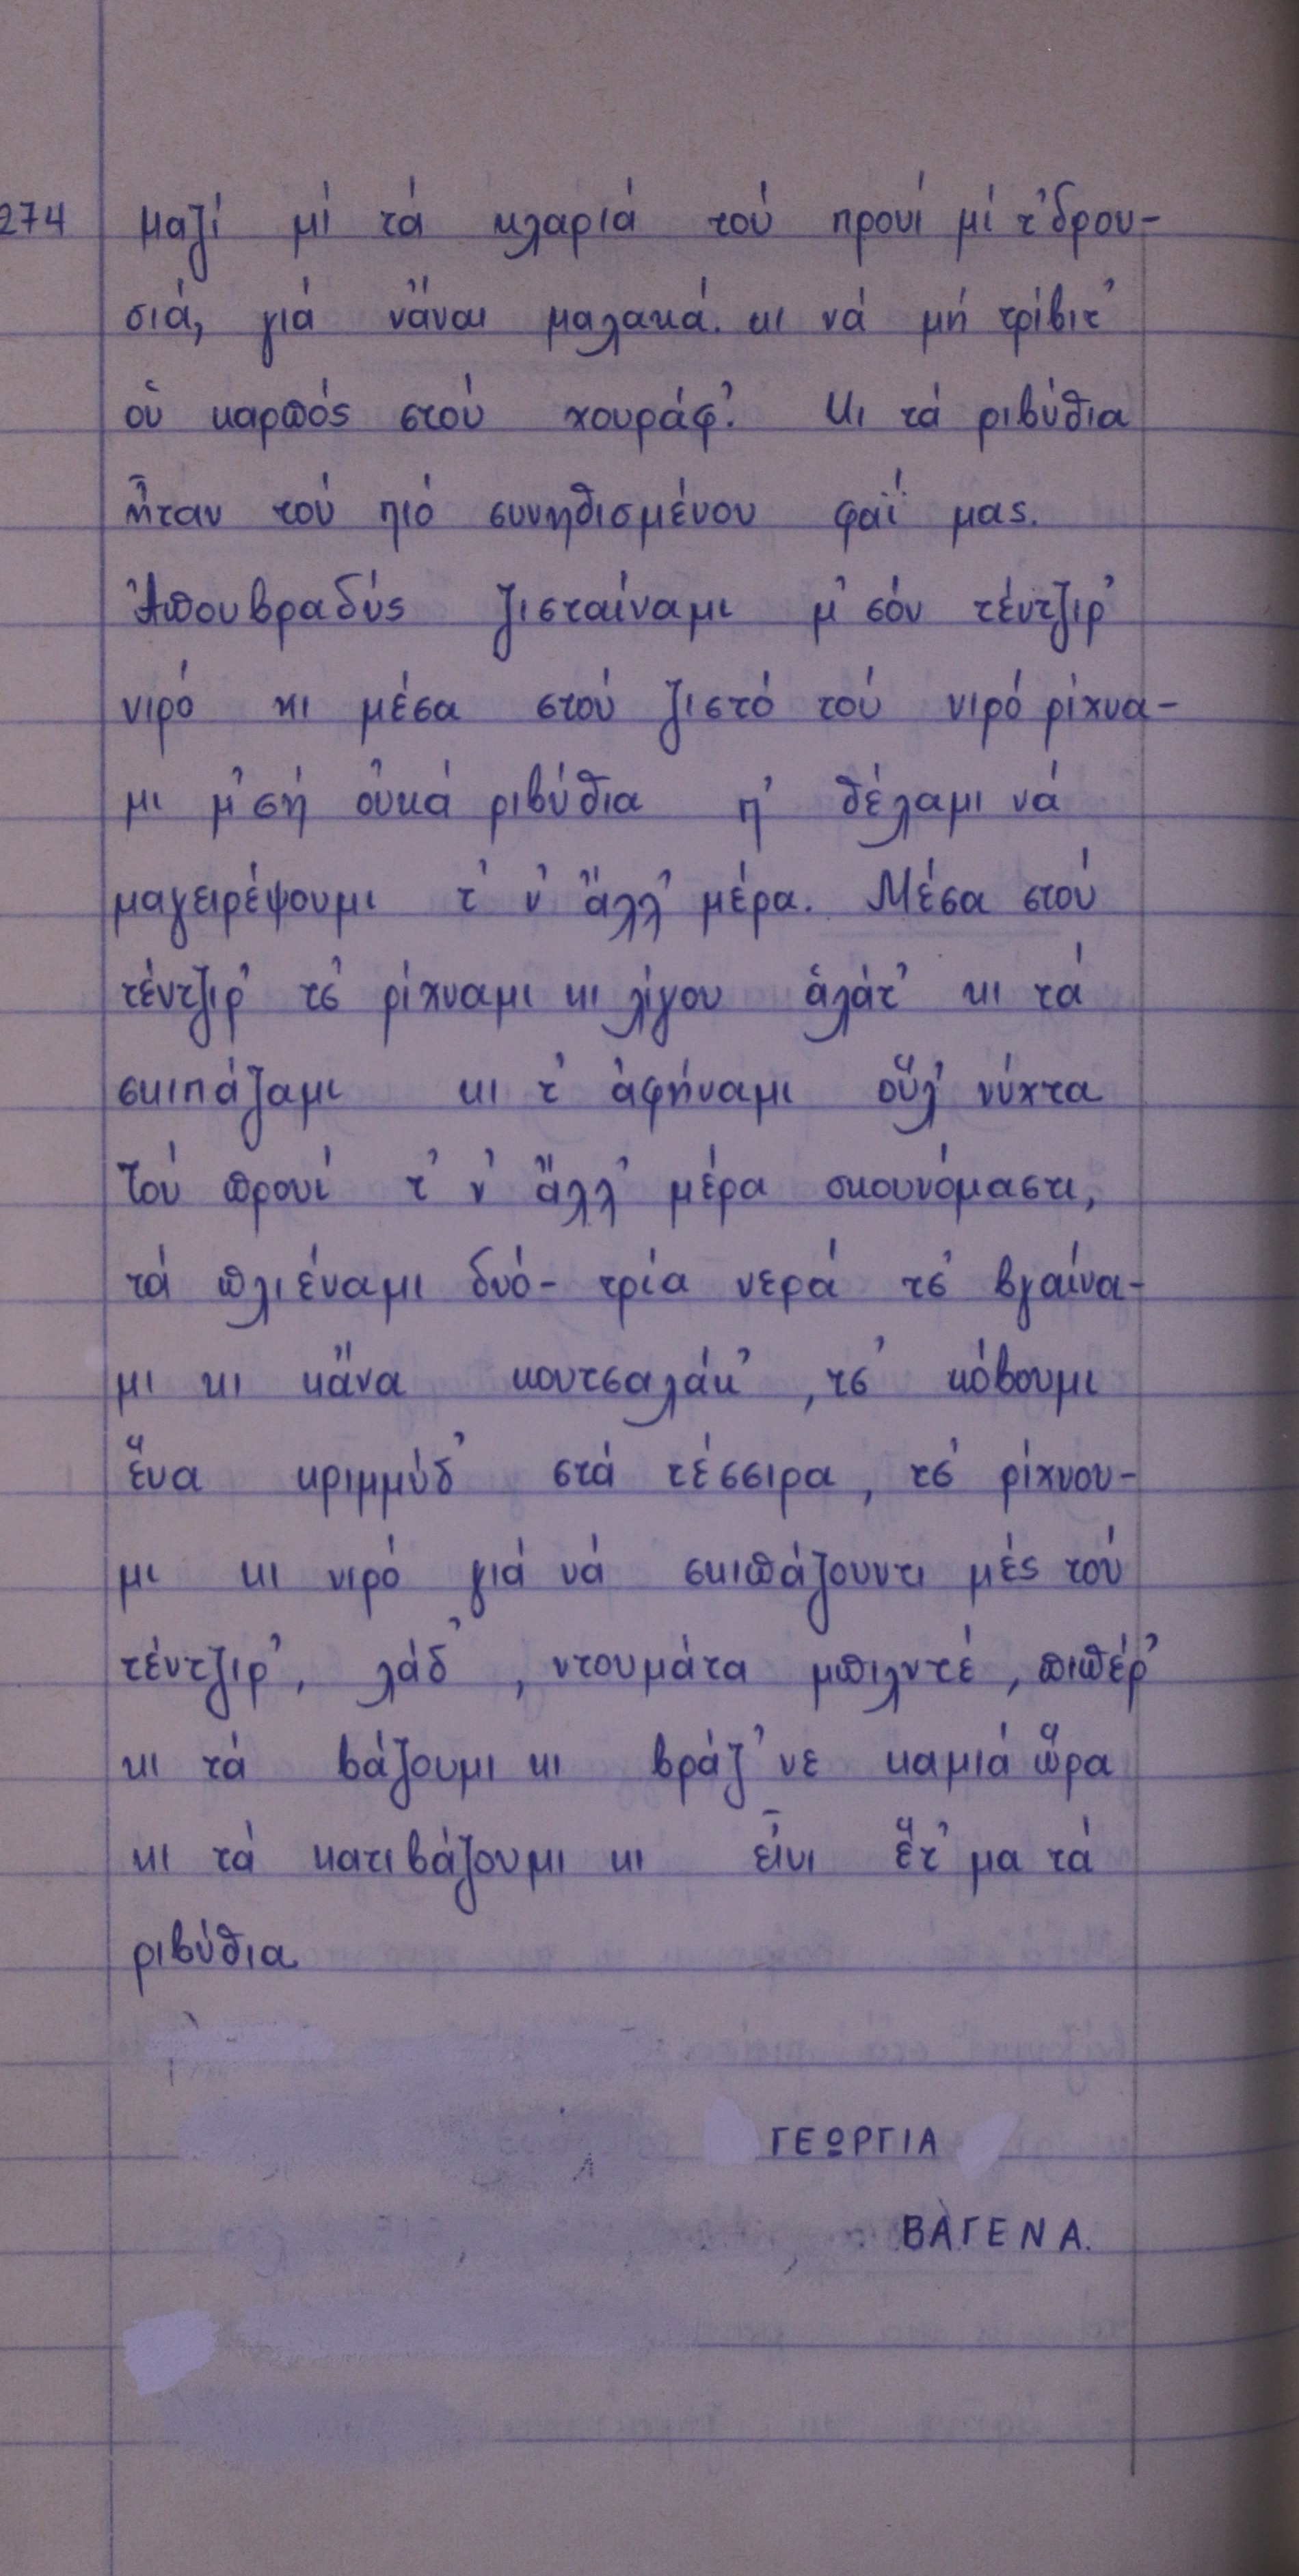 274 μαζί μί τά κλαριά τού προυί μί τ' δρου-
σιά, γιά νἄναι μαλακά. κι νά μή τρίβιτ'
οὑ καρπός στού χουράφ'. Κι τά ριβύθια
ἦταν τού πιό συνηθισμένου φαΐ μας.
Ἀπουβραδύς ζισταίναμι μ'σόν τέντζιρ'
νιρό κι μέσα στού ζιστό τού νιρό ρίχνα-
μι μ'σή οὐκά ριβύθια π' θέλαμι νά
μαγειρέψουμι τ' ν' ἄλλ' μέρα. Μέσα στού
τέντζιρ' τσ' ρίχναμι κι λίγου ἁλάτ' κι τά
σκιπάζαμι κι τ' ἀφήναμι οὕλ' νύχτα
Τού προυί τ' ν' ἄλλ' μέρα σκουνόμαστι,
τά πλιέναμι δυό- τρία νερά τσ' βγαίνα-
μι κι κἄνα κουτσαλάκ' , τσ' κόβουμι
ἕνα κριμμύδ' στά τέσσιρα, τσ' ρίχνου-
μι κι νιρό γιά νά σκιπάζουντι μές τού
τέντζιρ', λάδ' , ντουμάτα μπιλντέ, πιπέρ'
κι τά βάζουμι κι βράζ' νε καμιά ὥρα
κι τά κατιβάζουμι κι εἶνι ἕτ' μα τά
ριβύθια
ΓΕΩΡΓΙΑ
ΒΑΓΕΝΑ.